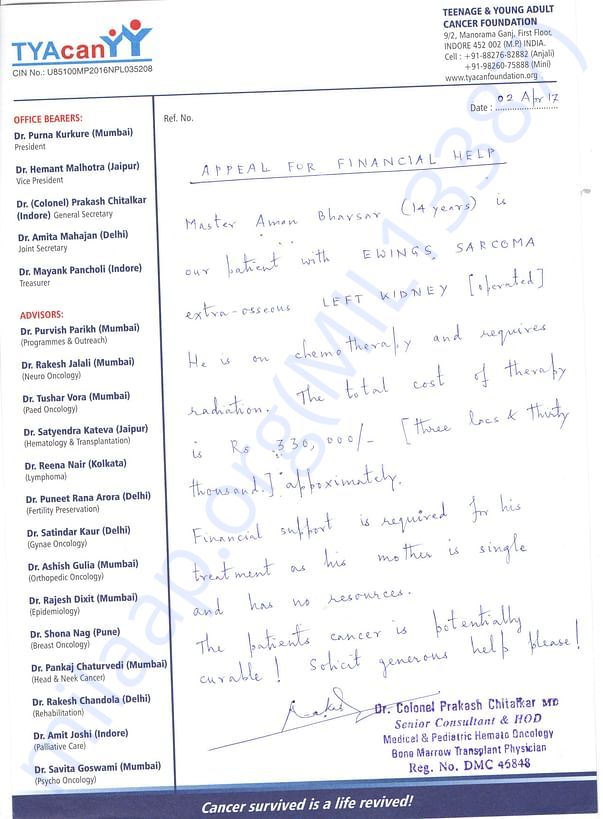 TYAcan
CIN No.: U85100MP2016NPL035208
TEENAGE & YOUNG ADULT
CANCER FOUNDATION
9/2, Manorama Ganj, First Floor,
INDORE 452 002 (M.P.) INDIA.
Cell : +91-88276-82882 (Anjali)
+91-98260-75888 (Mini)
www.tyacanfoundation.org
OFFICE BEARERS:
Dr. Purna Kurkure (Mumbai)
President
Dr. Hemant Malhotra (Jaipur)
Vice President
Dr. (Colonel) Prakash Chitalkar
(Indore) General Secretary
Dr. Amita Mahajan (Delhi)
Joint Secretary
Dr. Mayank Pancholi (Indore)
Treasurer
ADVISORS:
Dr. Purvish Parikh (Mumbai)
(Programmes & Outreach)
Dr. Rakesh Jalali (Mumbai)
(Neuro Oncology)
Dr. Tushar Vora (Mumbai)
(Paed Oncology)
Dr. Satyendra Kateva (Jaipur)
(Hematology & Transplantation)
Dr. Reena Nair (Kolkata)
(Lymphoma)
Dr. Puneet Rana Arora (Delhi)
(Fertility Preservation)
Dr. Satindar Kaur (Delhi)
(Gynae Oncology)
Dr. Ashish Gulia (Mumbai)
(Orthopedic Oncology)
Dr. Rajesh Dixit (Mumbai)
(Epidemiology)
Dr. Shona Nag (Pune)
(Breast Oncology)
Dr. Pankaj Chaturvedi (Mumbai)
(Head & Neek Cancer)
Dr. Rakesh Chandola (Delhi)
(Rehabilitation)
Dr. Amit Joshi (Indore)
(Palliative Care)
Dr. Savita Goswami (Mumbai)
(Psycho Oncology)
Ref. No.
Date : 02 Apr 17
APPEAL FOR FINANCIAL HELP
Master Aman Bhavsar (14 years) is
our patient with EWINGS SARCOMA
extra-osseous LEFT KIDNEY [operated]
He is on chemotherapy and requires
radiation. The total cost of therapy
is Rs 330,000/- [three lacs & thirty
thousand.] appoximately.
Financial support is required for his
treatment as his mother is single
and has no resources.
The patients cancer is potentially
curable! Solicit generous help please!
Dr. Colonel Prakash Chitalkar MD
Senior Consultant & HOD
Medical & Pediatric Hemato Oncology
Bone Marrow Transplant Physician
Reg. No. DMC 46848
Cancer survived is a life revived!
milaap.org(MIL13387)